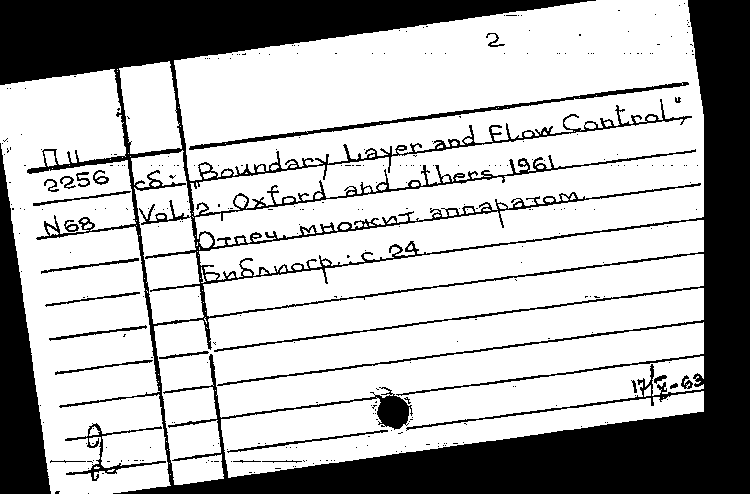 2
П11
2256 сб: „Boundary Layer and Flow Control“,
N68 Vol. 2; Oxford and others, 1961
Отпеч. множит. аппаратом
Библиогр.: с. 24
17/X-63